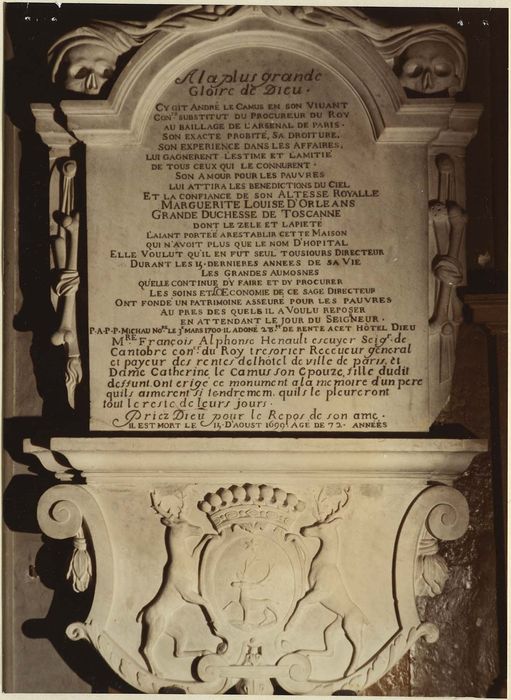 A la plus grande
Gloire de Dieu.
CY GIT ANDRÉ LE CAMUS EN SON VIUANT
CON.ER SUBSTITUT DU PROCUREUR DU ROY
AU BAILLAGE DE L'ARSENAL DE PARIS.
SON EXACTE PROBITÉ, SA DROITURE,
SON EXPERIENCE DANS LES AFFAIRES,
LUI GAGNERENT LESTIME ET LAMITIÉ
DE TOUS CEUX QUI LE CONNURENT.
SON AMOUR POUR LES PAUVRES
LUI ATTIRA LES BENEDICTIONS DU CIEL
ET LA CONFIANCE DE SON ALTESSE ROYALLE
MARGUERITE LOUISE D'ORLEANS
GRANDE DUCHESSE DE TOSCANNE
DONT LE ZELE ET LAPIETÉ
L'AIANT PORTÉE ARESTABLIR CETTE MAISON
QUI N'AVOIT PLUS QUE LE NOM D'HOPITAL
ELLE VOULUT QU'IL EN FUT SEUL TOUSIOURS DIRECTEUR
DURANT LES 14 DERNIERES ANNÉES DE SA VIE
LES GRANDES AUMOSNES
QUELLE CONTINUE D'Y FAIRE ET D'Y PROCURER
LES SOINS ET L'ECONOMIE DE CE SAGE DIRECTEUR
ONT FONDÉ UN PATRIMOINE ASSEURÉ POUR LES PAUVRES
AU PRES DES QUELS IL A VOULU REPOSER
EN ATTENDANT LE JOUR DU SEIGNEUR.
P.A.P.P. MICHAU NO.RE LE 3.E MARS 1700 IL A DONÉ 28 DE RENTE A CET HÔTEL DIEU
M.RE François Alphonse Henault escuyer Seig.r de
Cantobre con.er du Roy tresorier Receveur general
et payeur des rentes de lhotel de ville de paris, et
Dame Catherine le Camus son Epouze, fille dudit
deffunt, ont erigé ce monument a la memoire d'un pere
quils aimerent si tendremem. quils le pleureront
tout le reste de leurs jours.
Priez Dieu pour le Repos de son ame.
IL EST MORT LE 14 D'AOUST 1699 AGÉ DE 72. ANNÉES